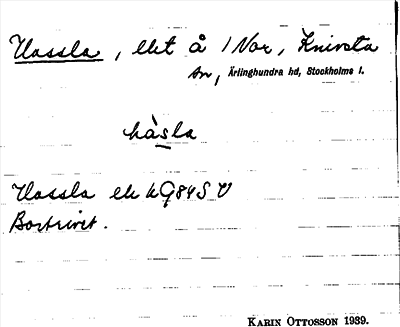 Hassla, lht å 1 Nor, Knivsta
sn, Ärlinghundra hd, Stockholms l.
hàsla
Hassla ek hG84S V
Bortrivet.
KARIN OTTOSSON 1939.